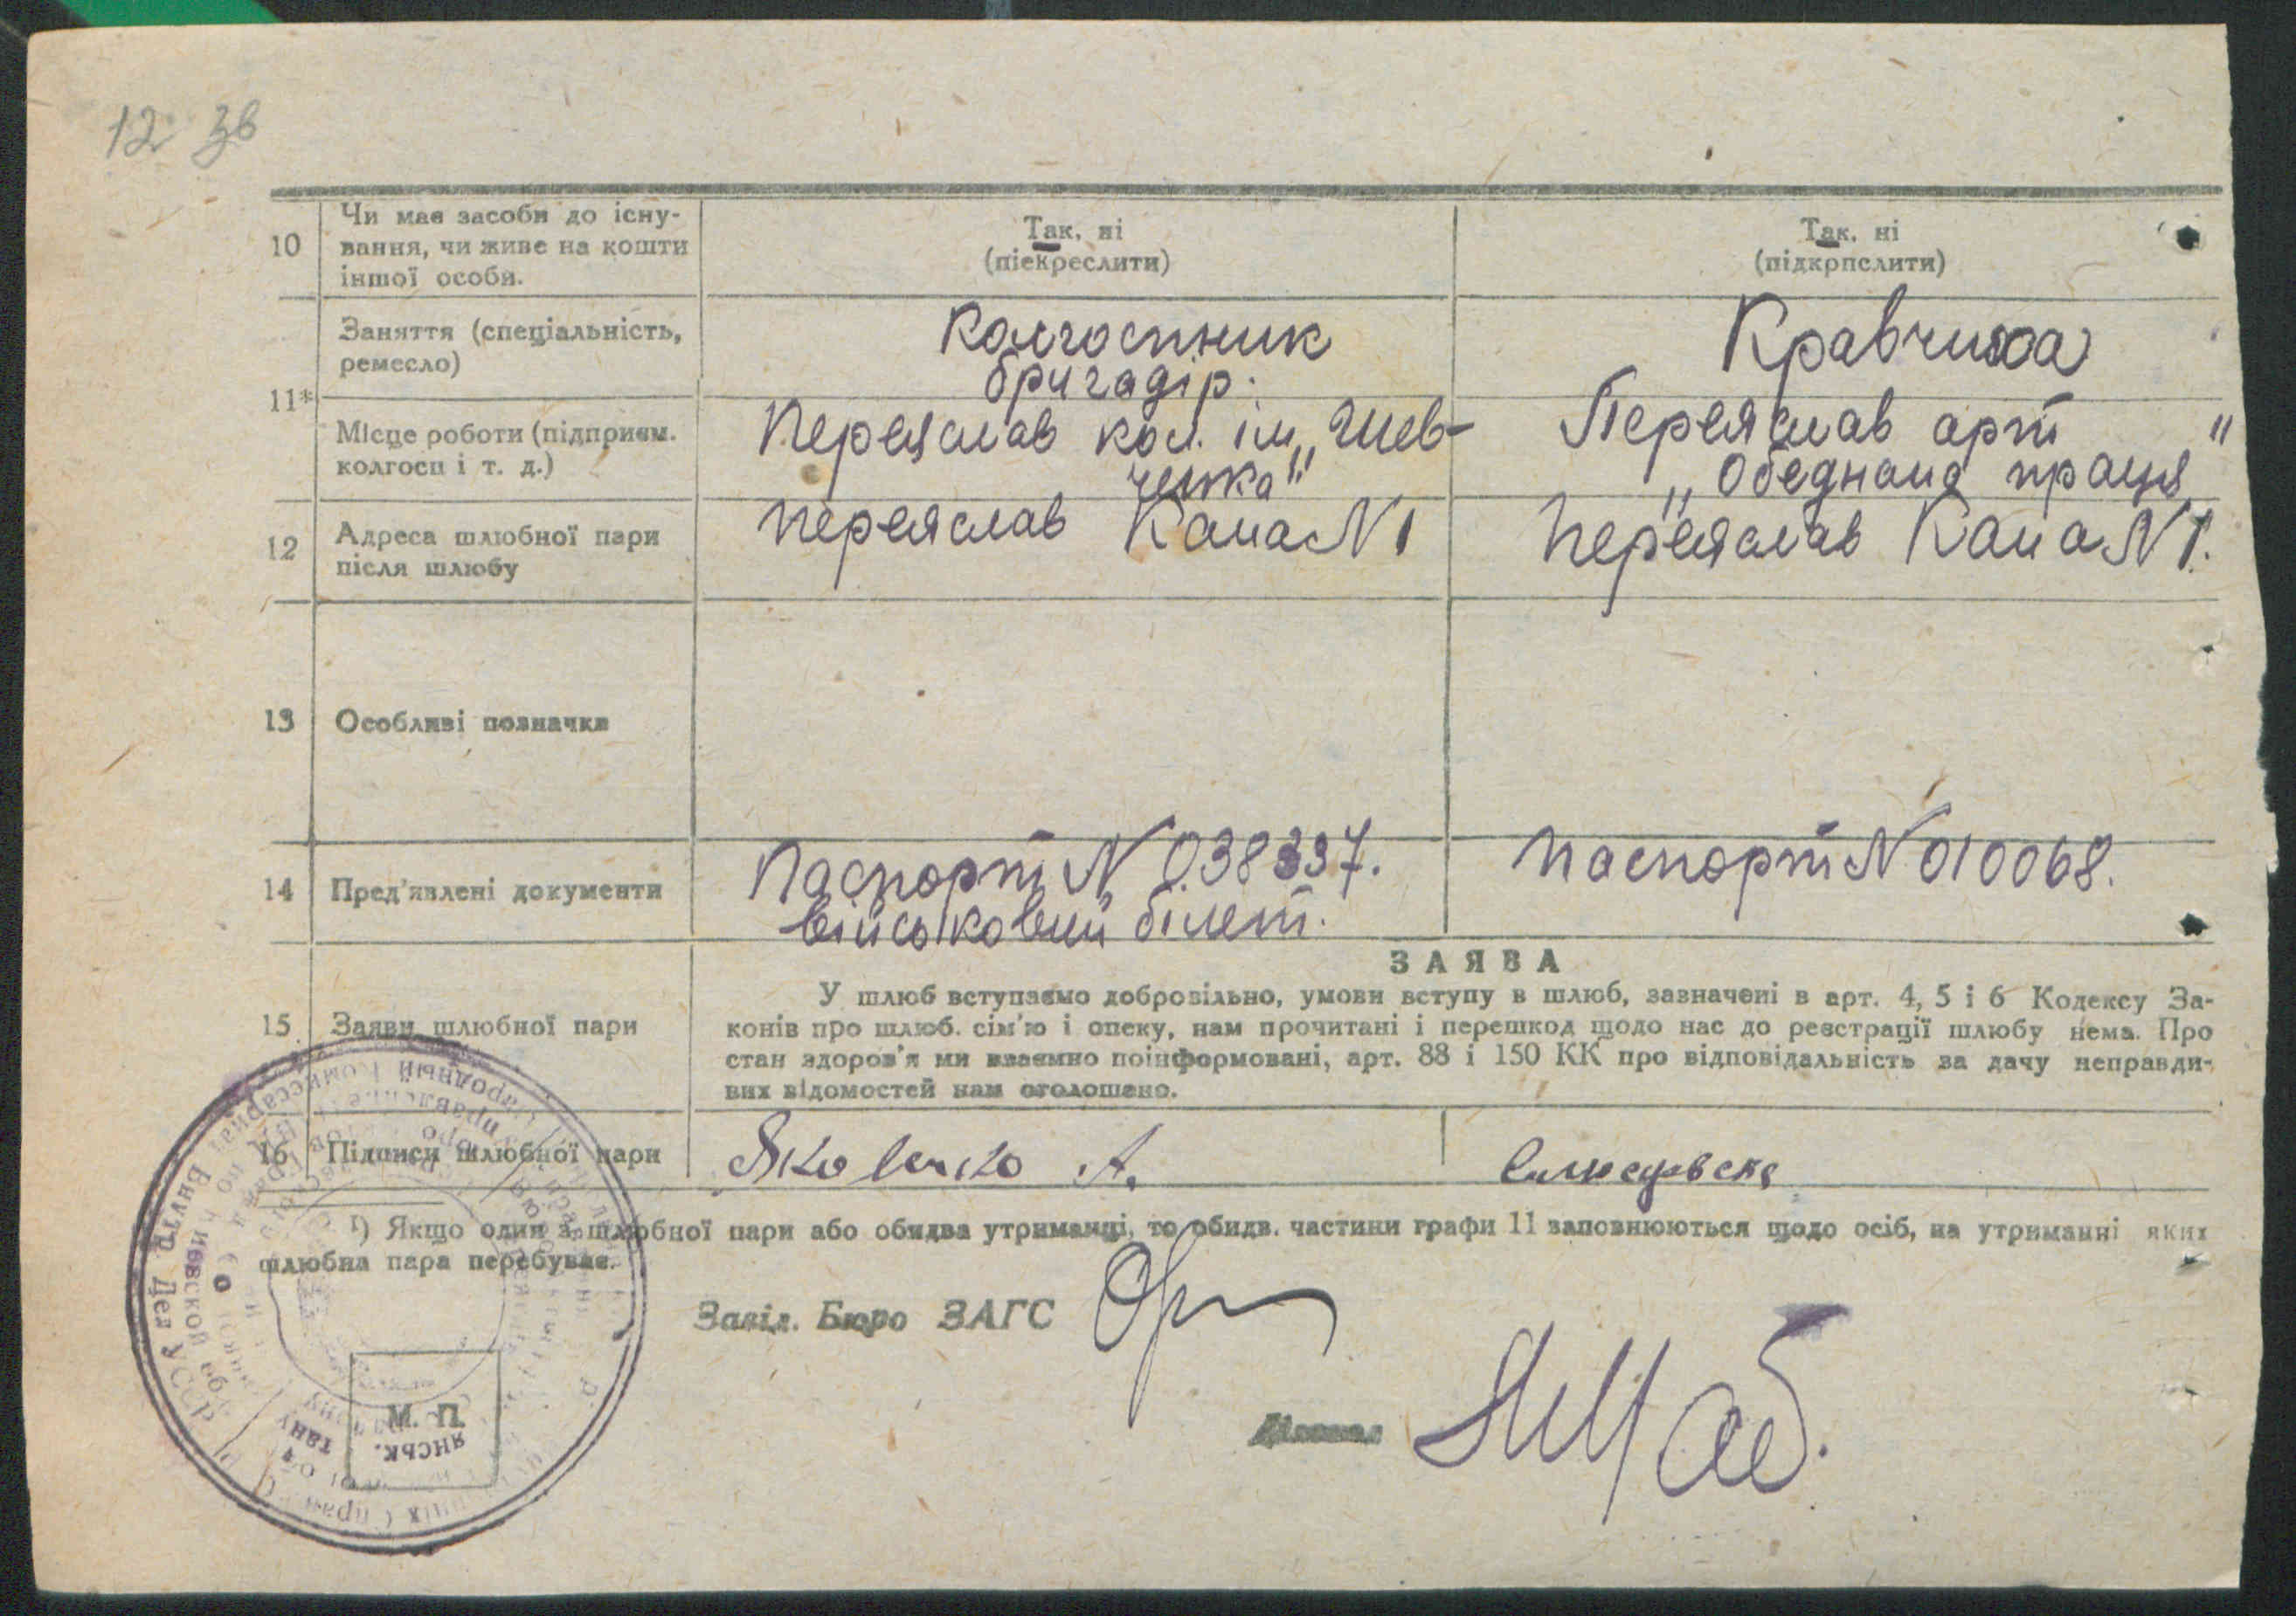 12 зв
10
Чи має засоби до існу-
вання, чи живе на кошти
іншої особи.
Так, ні
(піекреслити)
Так, ні
(підкрпслити)
11*
Заняття (спеціальність,
ремесло)
Колгоспник
бригадір.
Кравчиха
Місце роботи (підприєм.
колгосп і т. д.)
Переяслав кол. ім „Шев-
ченка"
Переяслав арт
„Обєднана праця"
12
Адреса шлюбної пари
після шлюбу
Переяслав Кана N 1
Переяслав Кана N 1.
13
Особливі позначки
14
Пред'явлені документи
Паспорт N 038337.
військовий білет.
Паспорт N 010068.
15
Заяви шлюбної пари
ЗАЯВА
У шлюб вступаємо добровільно, умови вступу в шлюб, зазначені в арт. 4, 5 і 6 Кодексу За-
конів про шлюб. сім'ю і опеку, нам прочитані і перешкод щодо нас до реєстрації шлюбу нема. Про
стан здоров'я ми взаємно поінформовані, арт. 88 і 150 КК про відповідальність за дачу неправди-
вих відомостей нам оголошено.
16
Підписи шлюбної пари
1) Якщо один з шлюбної пари або обидва утриманці, то обидв. частини графи 11 заповнюються щодо осіб, на утриманні яких
шлюбна пара перебуває.
Завід. Бюро ЗАГС
М. П.
Народный Комиссариат Внутр. Дел УССР